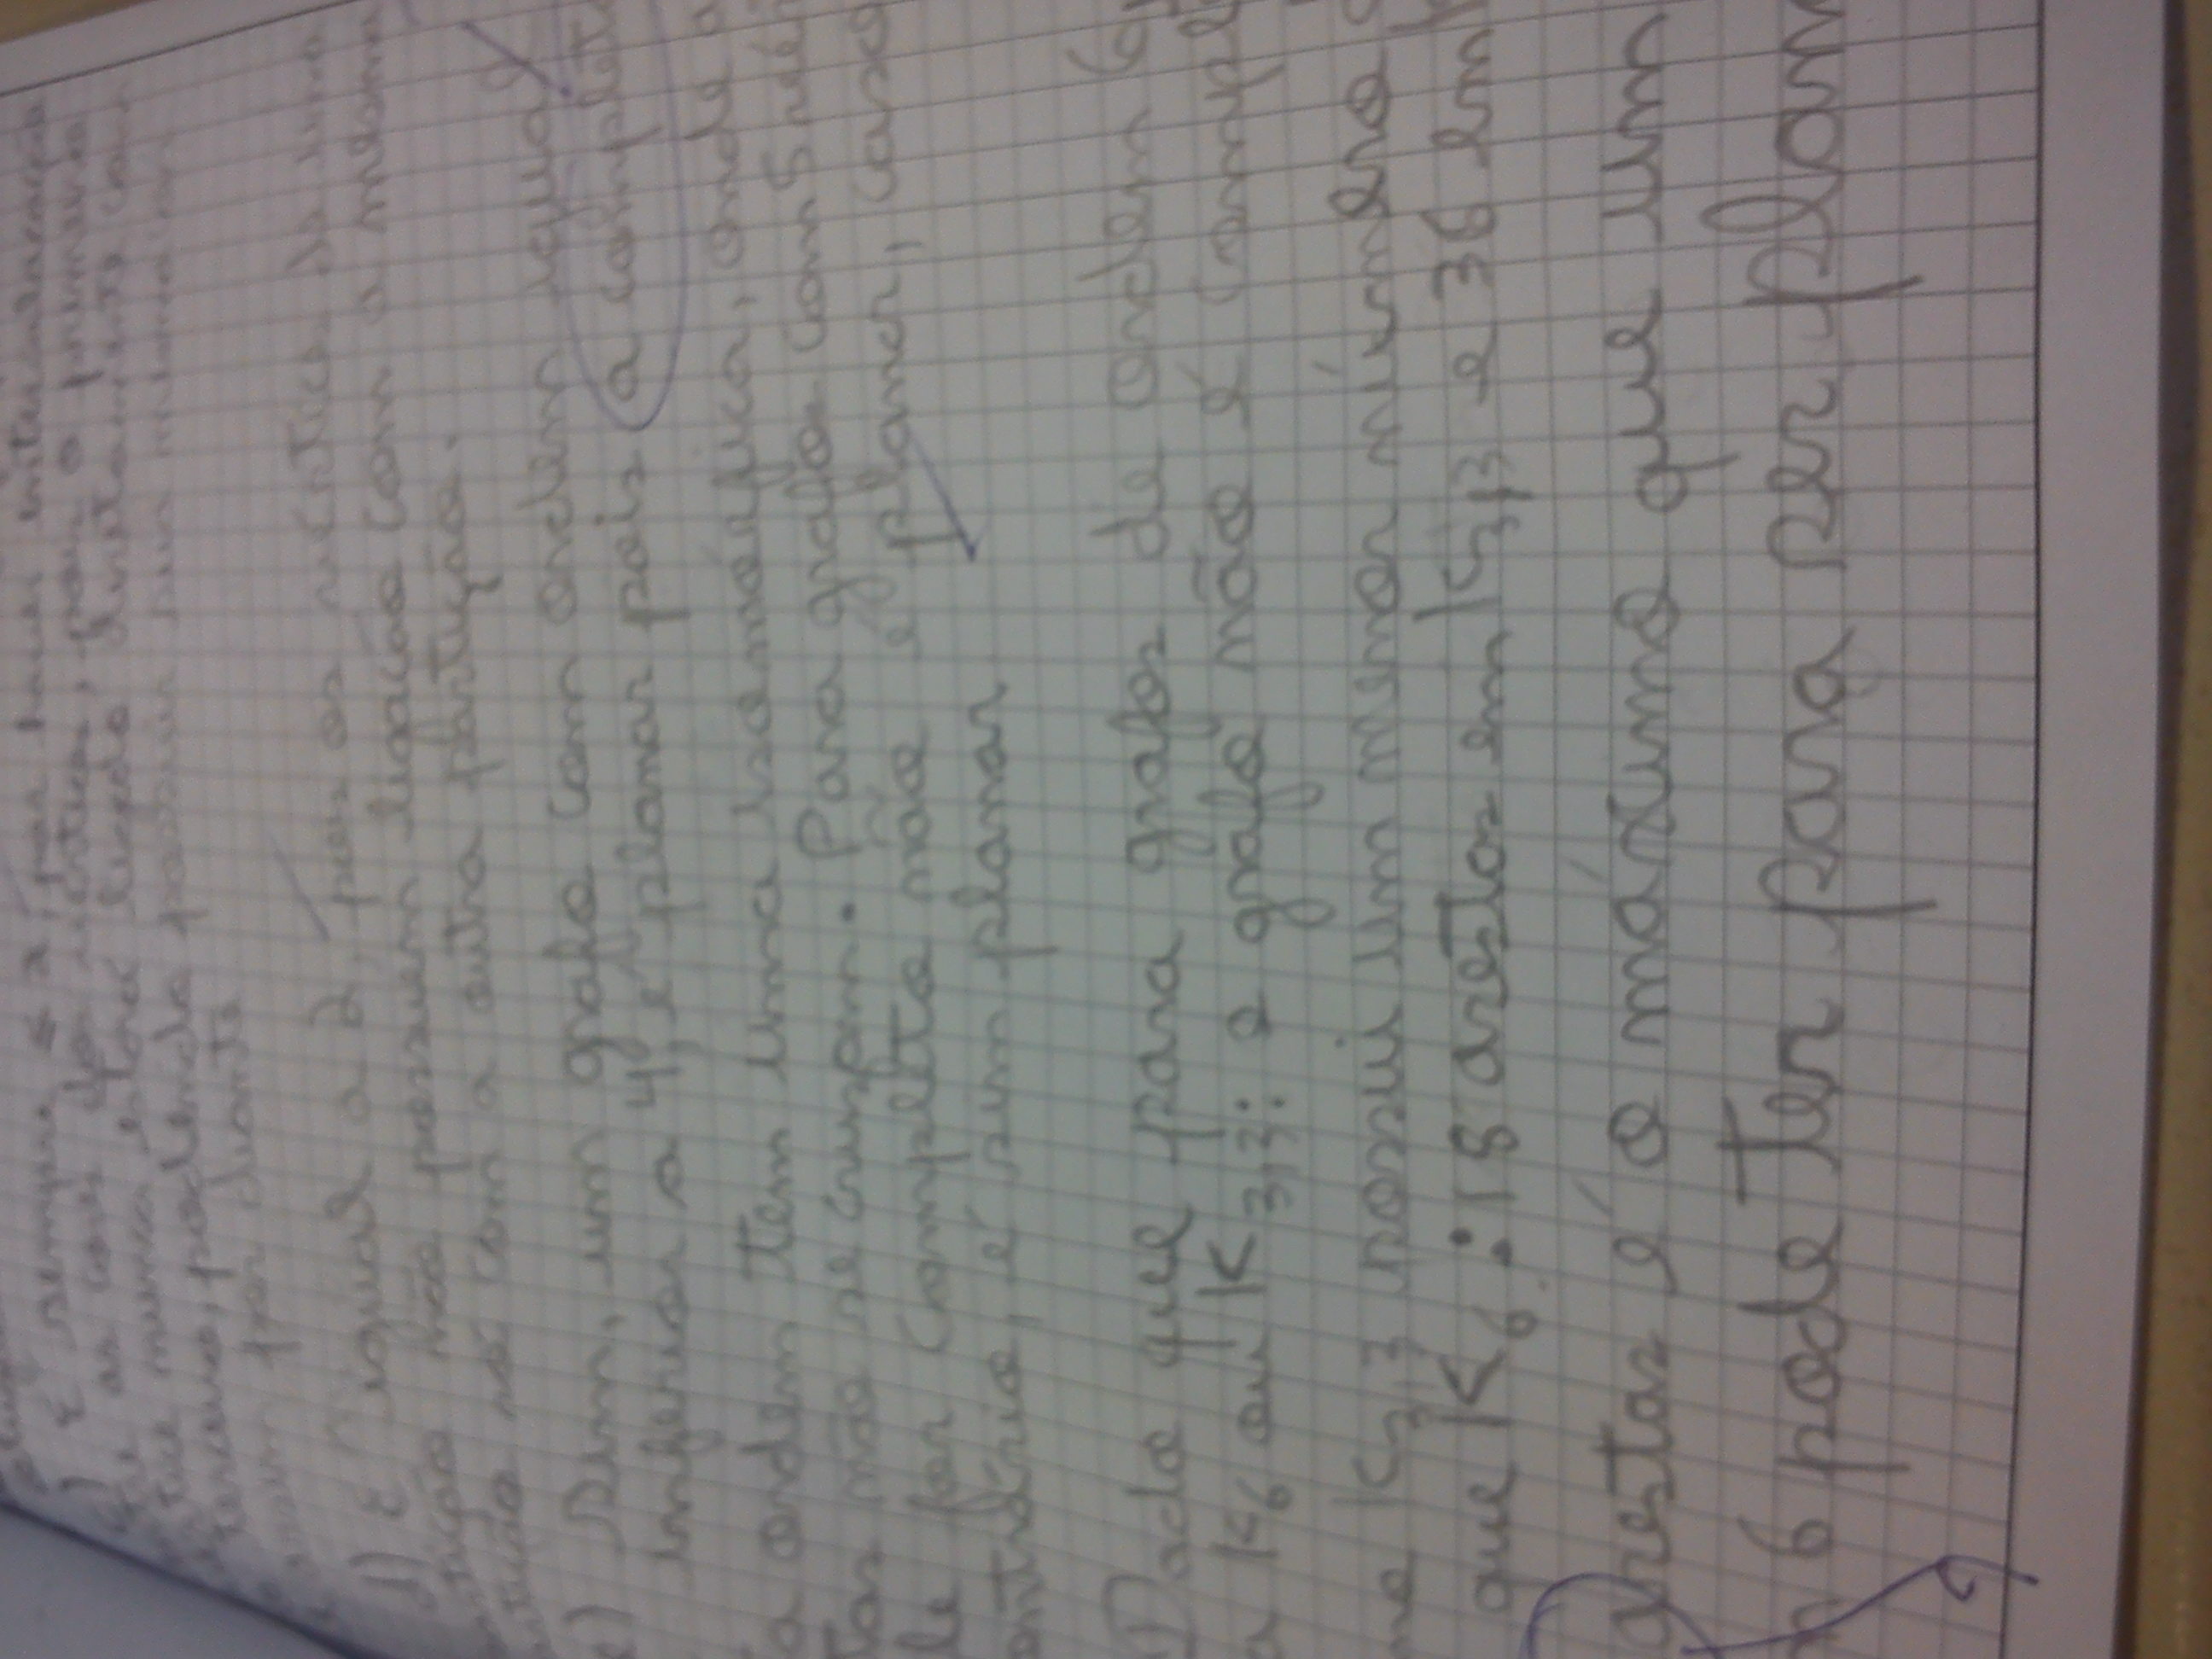 ) É sempre ≤ 2, por haver
as cores dos vértices, pois o primeiro
nunca estará ligado diretamente com
terceiro, podendo possuir
por diante
d) É igual a 2, pois os vértices de uma
não possuem ligação com a mesma
só com a outra partição.
) Sim, um grafo com ordem igual
inferior a 4, é planar pois a complet
a ordem tem uma isomórfica, onde a
tas não se cruzam. Para grafos com 5 vér
le for completo não é planar, caso
ontrário, é sim planar
Dado que para grafos de ordem 6,
a K6 ou K3,3: o grafo não é complet
mo K3,3 possui um menor número
que K6 : 18 arestas em K3,3 e 36 em
arestas é o máximo que um
m 6 pode ter para ser plan